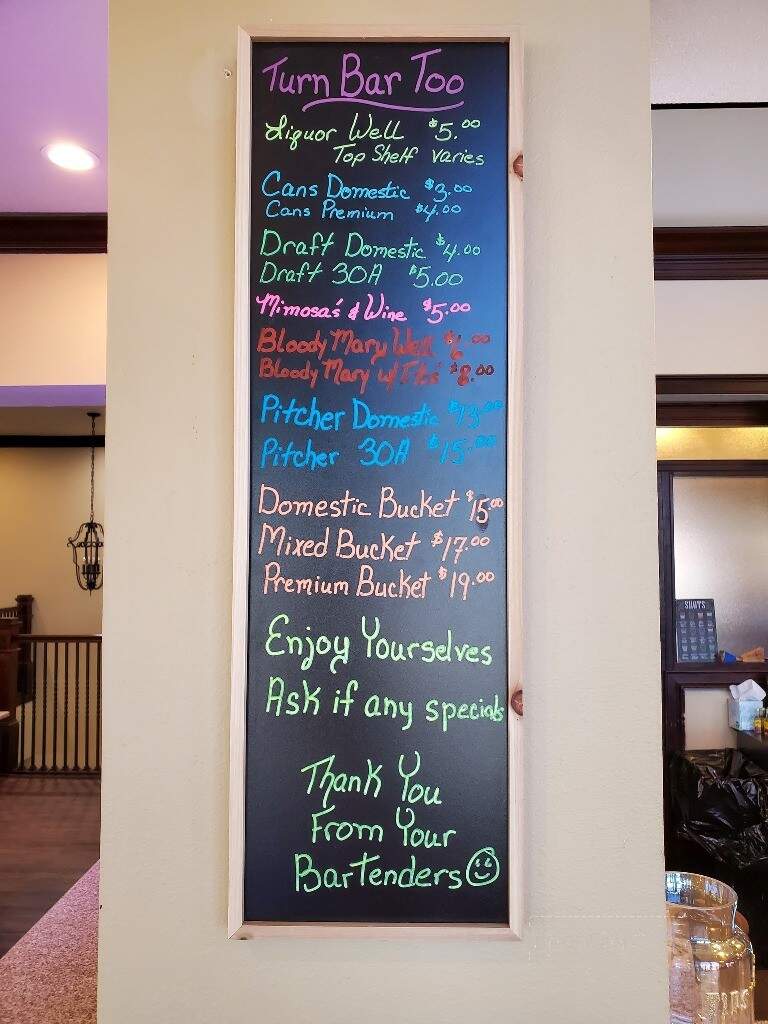 Turn Bar Too
Liquor Well $5.00
Top Shelf varies
Cans Domestic $3.00
Cans Premium $4.00
Draft Domestic $4.00
Draft 30A $5.00
Mimosa's & Wine $5.00
Bloody Mary Well $6.00
Bloody Mary w/ $8.00
Pitcher Domestic $13.00
Pitcher 30A $15.00
Domestic Bucket $15.00
Mixed Bucket $17.00
Premium Bucket $19.00
Enjoy Yourselves
Ask if any specials
Thank You
From Your
Bartenders
SHOTS